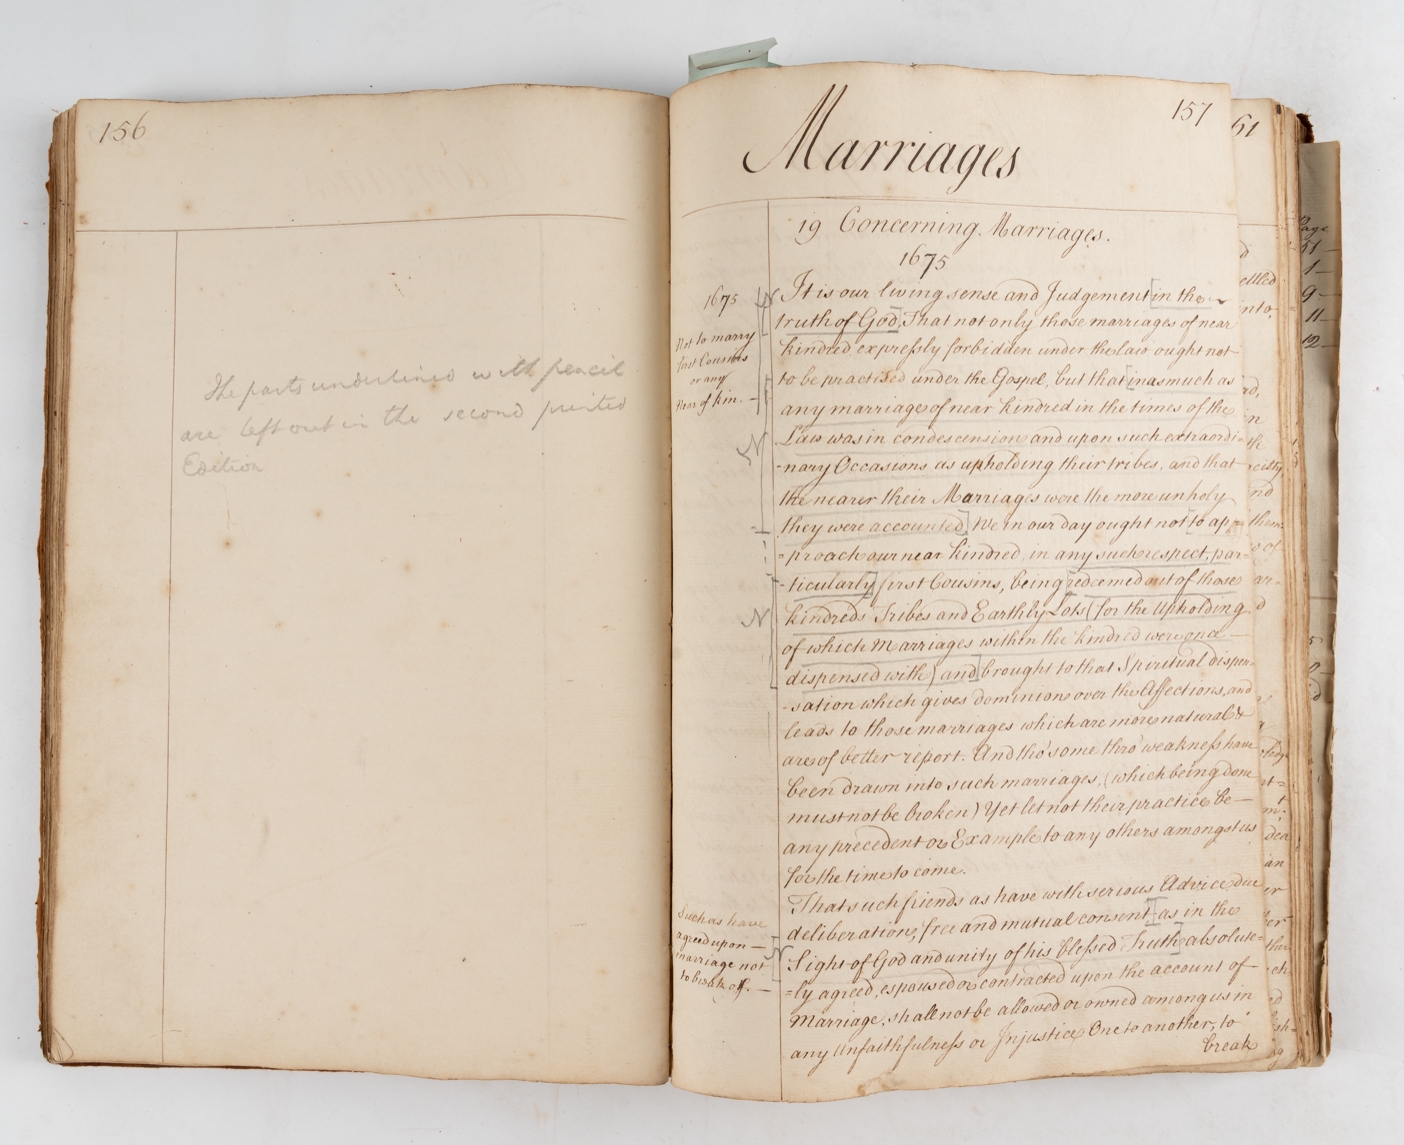 156
The parts underlined with pencil
are left out in the second printed
Edition
157
Marriages
19 Concerning Marriages.
1675
1675
Not to marry
first Cousins
or any
Near of kin.
N
It is our living sense and Judgement [in the
truth of God] That not only those marriages of near
kindred expressly forbidden under the law ought not
to be practised under the Gospel, but that [inasmuch as
any marriage of near kindred in the times of the
N
Law was in condescension and upon such extraordi-
-nary Occasions as upholding their tribes, and that
the nearer their Marriages were the more unholy
they were accounted] We in our day ought not [to ap=
=proach our near kindred, in any such respect, par=
-ticularly] first Cousins, being [redeemed out of those
N
kindreds Tribes and Earthly Lots (for the Upholding
of which Marriages within the kindred were once
dispensed with) and] brought to that Spiritual dispen-
-sation which gives dominion over the Affections, and
leads to those marriages which are more natural &
are of better report. And tho' some thro' weakness have
been drawn into such marriages, (which being done
must not be broken) Yet let not their practice be
any precedent or Example to any others amongst us
for the time to come.
Such as have
agreed upon
marriage not
to break off.
That such friends as have with serious Advice due
deliberation, free and mutual consent [as in the
N
Sight of God and unity of his blessed Truth] absolute=
=ly agreed, espoused or contracted upon the account of
Marriage, shall not be allowed or owned among us in
any Unfaithfulness or Injustice One to another, to
break
61
Page
51
1
9
11
12